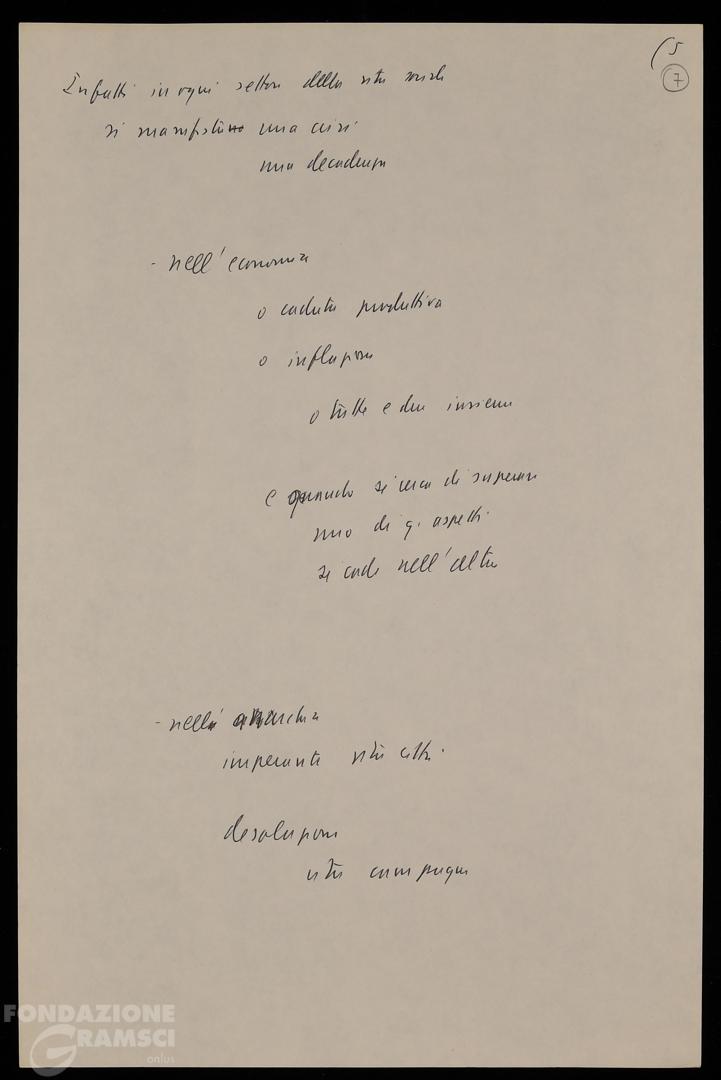 (5
7
Infatti in ogni settore della vita sociale
si manifestano una crisi
una decadenza
- nell'economia
o caduta produttiva
o inflazione
o tutte e due insieme
e quando si cerca di superare
uno di q. aspetti
si cade nell'altro
- nell'anarchia
imperante città
desolazione
campagne
FONDAZIONE
GRAMSCI
onlus